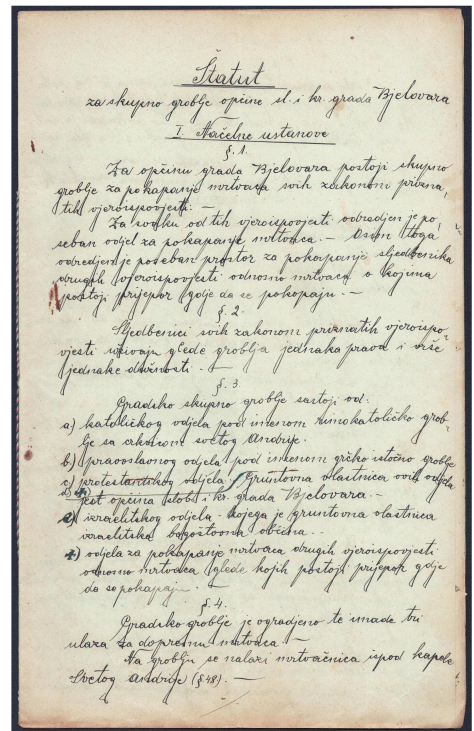 Štatut
za skupno groblje općine sl. i kr. grada Bjelovara
I. Načelne ustanove
§. 1.
Za općinu grada Bjelovara postoji skupno
groblje za pokapanje mrtvaca svih zakonom prizna,
tih vjeroispovjesti. —
Za svaku od tih vjeroispovjesti odredjen je po,
seban odjel za pokapanje mrtvaca. — Osim toga
odredjen je poseban prostor za pokapanje sljedbenika
drugih vjeroispovjesti odnosno mrtvaca o kojima
postoji prijepor gdje da se pokopaju. —
§. 2.
Sljedbenici svih zakonom priznatih vjeroispo-
vjesti uživaju glede groblja jednaka prava i vrše
jednake dužnosti. —
§. 3.
Gradsko skupno groblje sastoji od:
a) katoličkog odjela pod imenom rimokatoličko grob-
lje sa crkvom svetog Andrije.
b) pravoslavnog odjela pod imenom grčko istočno groblje
c) protestantskog odjela gruntovna vlastnica ovih odjela
jest općina slob. i kr. grada Bjelovara. —
d) izraelitskog odjela kojega je gruntovna vlastnica
izraelitska bogoštovna obćina. —
e) odjela za pokapanje mrtvaca drugih vjeroispovjesti
odnosno mrtvaca glede kojih postoji prijepor gdje
da se pokapaju. —
§. 4.
Gradsko groblje je ogradjeno te imade tri
ulaza za dopremu mrtvaca. —
Na groblju se nalazi mrtvačnica ispod kapele
Svetog Andrije (§48). —